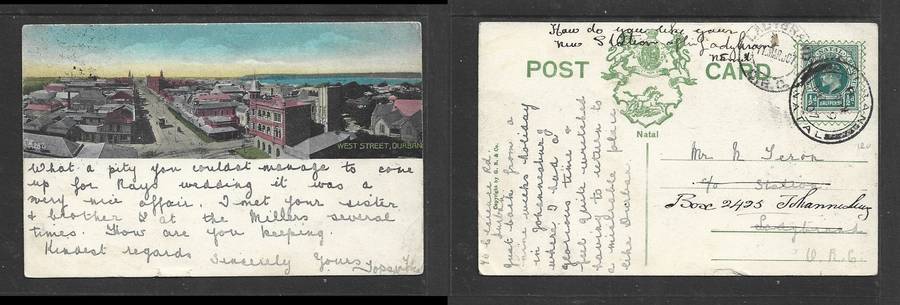 WEST STREET, DURBAN
What a pity you couldnt manage to come
up for Rays wedding it was a
very nice affair. I met your sister
& brother L at the Millers several
times. How are you keeping.
Kindest regards
Sincerely Yours
How do you like your
new Station
POST CARD
Natal
NATAL
HALFPENNY
Durban
Just back from a
nine weeks holiday
in Johannesburg
where I had a
glorious time &
feel quite wretched
having to return to
a miserable place
like Durban
Mr N. Seron
c/o Station
Box 2425 Johannesburg
Ladybrand
O.R.C.